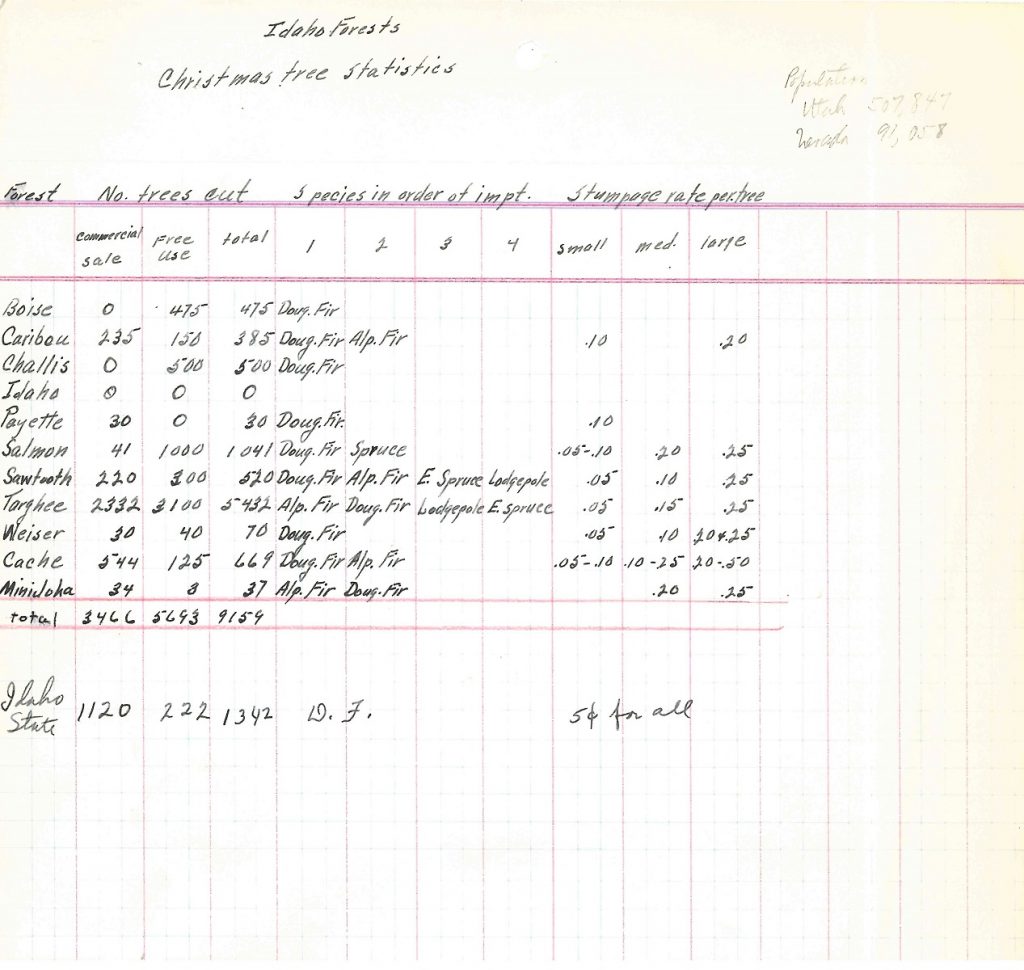 Idaho Forests
Christmas tree Statistics
Population
Utah 507,847
Nevada 91,058
Forest No. trees cut Species in order of impt. Stumpage rate per tree
commercial sale Free Use total 1 2 3 4 small med. large
Boise 0 475 475 Doug. Fir
Caribou 235 150 385 Doug. Fir Alp. Fir .10 .20
Challis 0 500 500 Doug. Fir
Idaho 0 0 0
Payette 30 0 30 Doug. Fir. .10
Salmon 41 1000 1041 Doug. Fir Spruce .05-.10 .20 .25
Sawtooth 220 300 520 Doug. Fir Alp. Fir E. Spruce Lodgepole .05 .10 .25
Targhee 2332 3100 5432 Alp. Fir Doug. Fir Lodgepole E. spruce .05 .15 .25
Weiser 30 40 70 Doug. Fir .05 .10 20&.25
Cache 544 125 669 Doug. Fir Alp. Fir .05-.10 .10-25 20-.50
Minidoka 34 3 37 Alp. Fir Doug. Fir .20 .25
total 3466 5693 9159
Idaho State 1120 222 1342 D. F. 5¢ for all